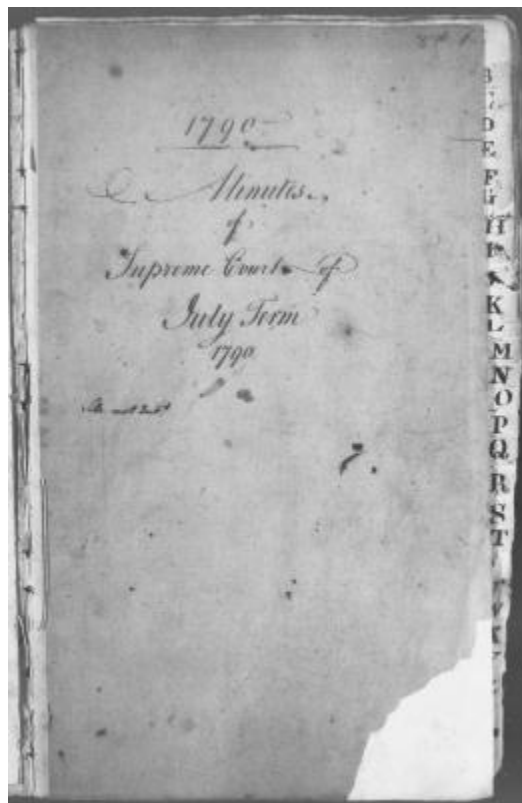 1790
Minutes
of
Supreme Court of
July Term
1790
B
C
D
E
F
G
H
I
K
L
M
N
O
P
Q
R
S
T